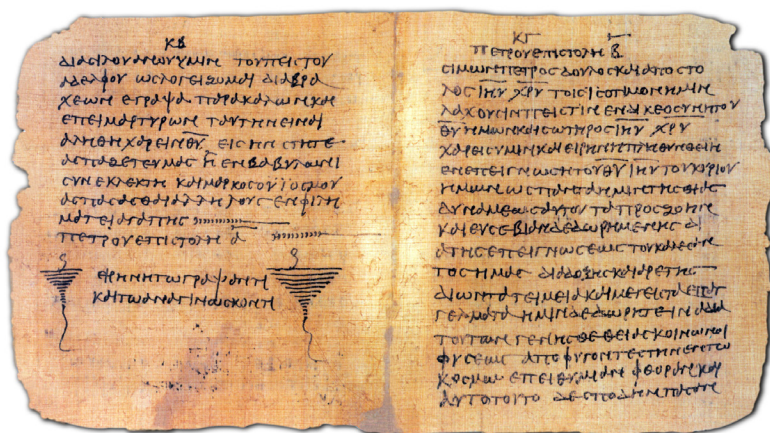 ΚΒ
ΔΙΑ ϹΙΛΟΥΑΝΟΥ ΥΜΙΝ ΤΟΥ ΠΙϹΤΟΥ
ΑΔΕΛΦΟΥ ΩϹ ΛΟΓΕΙΖΟΜΑΙ ΔΙΑ ΒΡΑ
ΧΕΩΝ ΕΓΡΑΨΑ ΠΑΡΑΚΑΛΩΝ ΚΑΙ
ΕΠΕΙΜΑΡΤΥΡΩΝ ΤΑΥΤΗΝ ΕΙΝΑΙ
ΑΛΗΘΗ ΧΑΡΕΙΝ Θ̅Υ̅ ΕΙϹ ΗΝ ϹΤΗΤΕ
ΑϹΠΑΖΕΤΕ ΥΜΑϹ Η ΕΝ ΒΑΒΥΛΩΝΙ
ϹΥΝΕΚΛΕΚΤΗ ΚΑΙ ΜΑΡΚΟϹ Ο ΥΙΟϹ ΜΟΥ
ΑϹΠΑϹΑϹΘΑΙ ΑΛΛΗΛΟΥϹ ΕΝ ΦΙΛΗ
ΜΑΤΕΙ ΑΓΑΠΗϹ
ΠΕΤΡΟΥ ΕΠΙϹΤΟΛΗ Α̅
ΕΙΡΗΝΗ ΤΩ ΓΡΑΨΑΝΤΙ
ΚΑΙ ΤΩ ΑΝΑΓΙΝΩϹΚΟΝΤΙ
ΚΓ
ΠΕΤΡΟΥ ΕΠΙϹΤΟΛΗ Β̅
ϹΙΜΩΝ ΠΕΤΡΟϹ ΔΟΥΛΟϹ ΚΑΙ ΑΠΟϹΤΟ
ΛΟϹ Ι̅Η̅Υ̅ Χ̅Ρ̅Υ̅ ΤΟΙϹ ΙϹΟΤΙΜΟΝ ΗΜΙΝ
ΛΑΧΟΥϹΙΝ ΠΕΙϹΤΙΝ ΕΝ ΔΙΚΕΟϹΥΝΗ ΤΟΥ
Θ̅Υ̅ ΗΜΩΝ ΚΑΙ ϹΩΤΗΡΟϹ Ι̅Η̅Υ̅ Χ̅Ρ̅Υ̅
ΧΑΡΕΙϹ ΥΜΙΝ ΚΑΙ ΕΙΡΗΝΗ ΠΛΗΘΥΝΘΕΙΗ
ΕΝ ΕΠΕΙΓΝΩϹΗ ΤΟΥ Θ̅Υ̅ Ι̅Η̅Υ̅ ΤΟΥ ΚΥΡΙΟΥ
ΗΜΩΝ ΩϹ ΠΑΝΤΑ ΗΜΙΝ ΤΗϹ ΘΙΑϹ
ΔΥΝΑΜΕΩϹ ΑΥΤΟΥ ΤΑ ΠΡΟϹ ΖΩΗΝ
ΚΑΙ ΕΥϹΕΒΙΑΝ ΔΕΔΩΡΗΜΕΝΗϹ ΔΙ
Α ΤΗϹ ΕΠΕΙΓΝΩϹΕΩϹ ΤΟΥ ΚΑΛΕϹΑΝ
ΤΟϹ ΗΜΑϹ ΔΙΑ ΔΟΞΗϹ ΚΑΙ ΑΡΕΤΗϹ
ΔΙ ΩΝ ΤΑ ΤΕΙΜΕΙΑ ΚΑΙ ΜΕΓΕΙϹΤΑ ΕΠΑΓ
ΓΕΛΜΑΤΑ ΗΜΙΝ ΔΕΔΩΡΗΤΕ ΙΝΑ ΔΙΑ
ΤΟΥΤΩΝ ΓΕΝΗϹΘΕ ΘΕΙΑϹ ΚΟΙΝΩΝΟΙ
ΦΥϹΕΩϹ ΑΠΟΦΥΓΟΝΤΕϹ ΤΗΝ ΕΝ ΤΩ
ΚΟϹΜΩ ΕΠΕΙΘΥΜΙΑΝ ΦΘΟΡΑϹ ΚΑΙ
ΑΥΤΟ ΤΟΥΤΟ ΔΕ ϹΠΟΥΔΗΝ ΠΑϹΑΝ